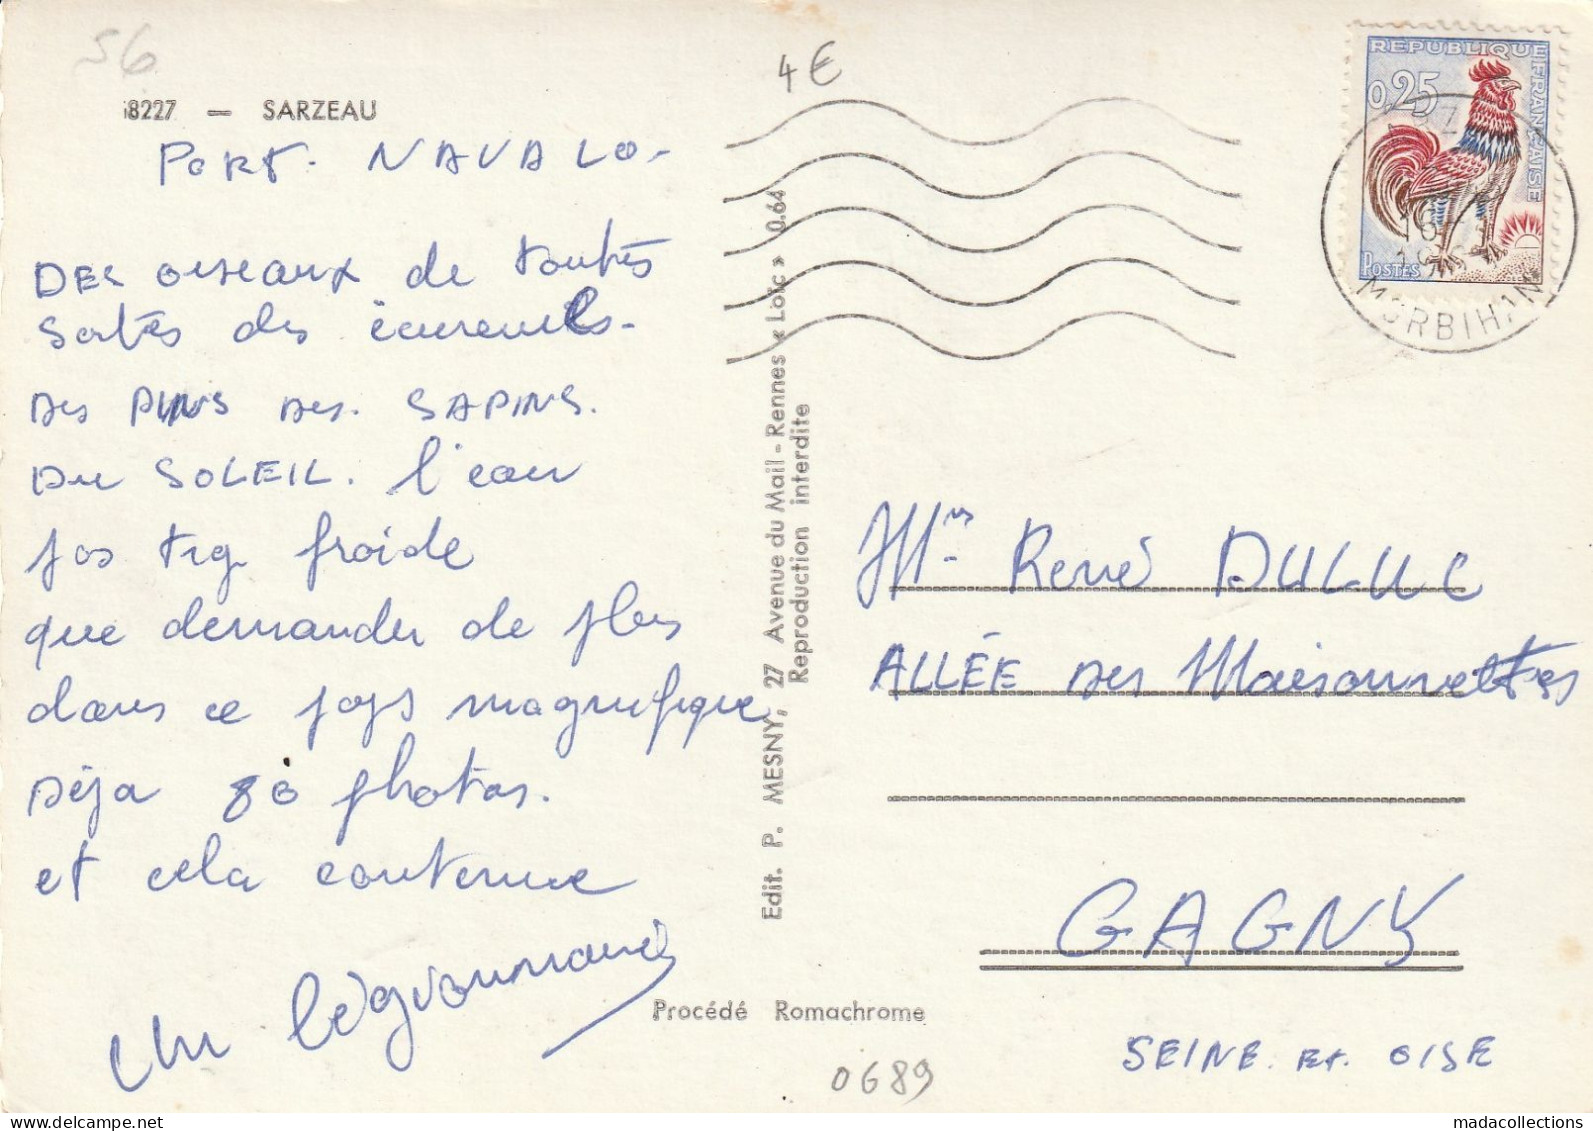 56
4€
68227 — SARZEAU
PORT. NAVALO-
DES OISEAUX de toutes
sortes des écureuils-
des PINS des. SAPINS.
Du SOLEIL. l'eau
pas trop froide
que demander de plus
dans ce pays magnifique
Déja 80 photos.
et cela continue
Un légionnaire
Edit. P. MESNY, 27 Avenue du Mail - Rennes « Loïc » 0.64
Reproduction interdite
Procédé Romachrome
0689
REPUBLIQUE FRANÇAISE
0,25
POSTES
16
MORBIHAN
Mr René DULUC
ALLÉE des Maisonnettes
GAGNY
SEINE. et. OISE
madacollections
delcampe.net